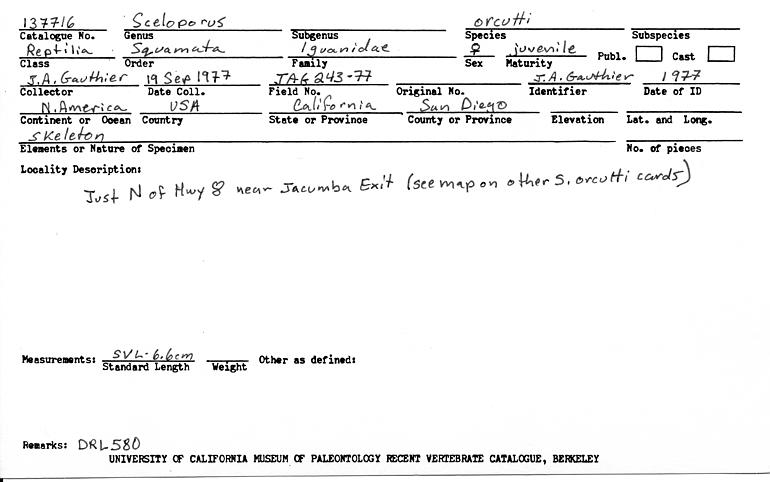 137716 Sceloporus orcutti
Catalogue No. Genus Subgenus Species Subspecies
Reptilia Squamata Iguanidae ♀ juvenile Publ. Cast
Class Order Family Sex Maturity
J.A. Gauthier 19 Sep 1977 JAG 243-77 J.A. Gauthier 1977
Collector Date Coll. Field No. Original No. Identifier Date of ID
N. America USA California San Diego
Continent or Ocean Country State or Province County or Province Elevation Lat. and Long.
skeleton
Elements or Nature of Specimen No. of pieces
Locality Description:
Just N of Hwy 8 near Jacumba Exit (see map on other S. orcutti cards)
Measurements: SVL-6.6cm Other as defined:
Standard Length Weight
Remarks: DRL580
UNIVERSITY OF CALIFORNIA MUSEUM OF PALEONTOLOGY RECENT VERTEBRATE CATALOGUE, BERKELEY